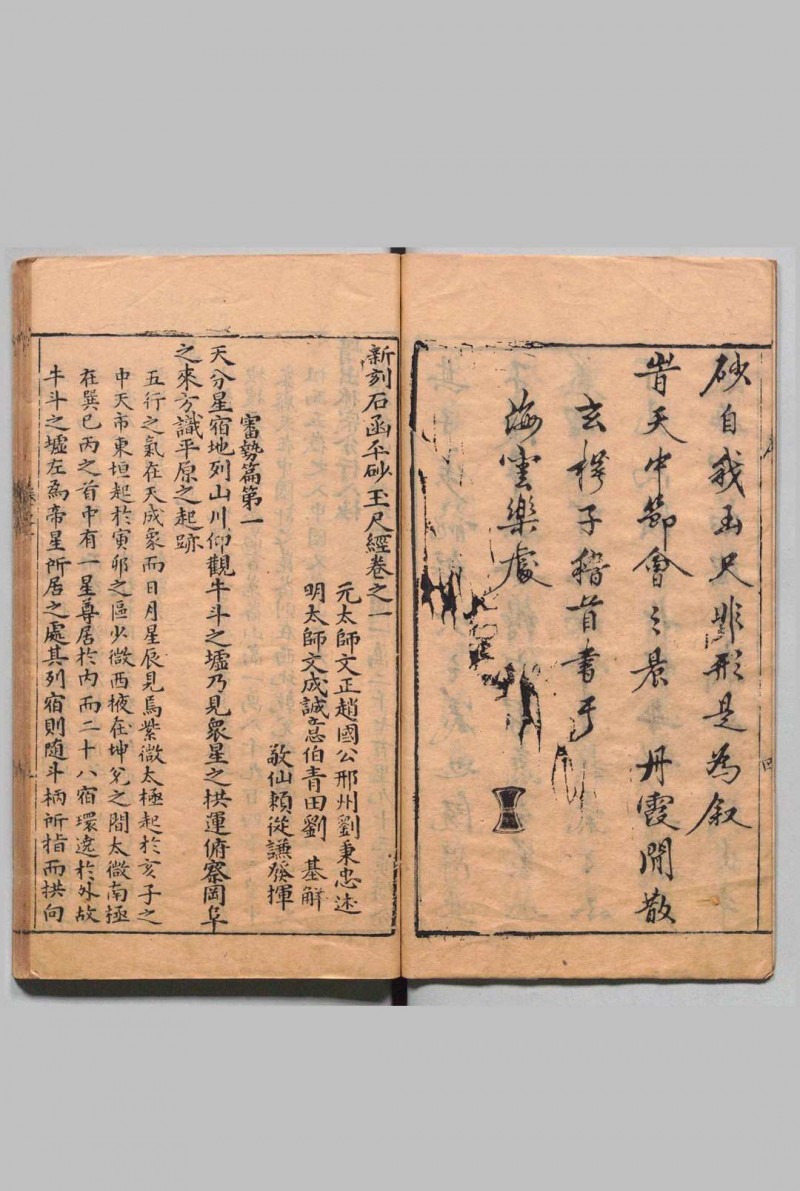 砂自我玉尺非形是為叙
旹天中節會之晨丹霞閒散
玄穆子稽首書于
海雲樂處
新刻石函平砂玉尺經卷之一
元太師文正趙國公邢州劉秉忠述
明太師文成誠意伯青田劉基解
敬仙賴從謙發揮
審勢篇第一
天分星宿地列山川仰觀牛斗之墟乃見衆星之拱運俯察岡阜
之來方識平原之起跡
五行之氣在天成象而日月星辰見焉紫微太極起於亥子之
中天市東垣起於寅卯之區少微西掖在坤兌之間太微南極
在巽巳丙之首中有一星尊居於內而二十八宿環遶於外故
牛斗之墟左為帝星所居之處其列宿則随斗柄所指而拱向